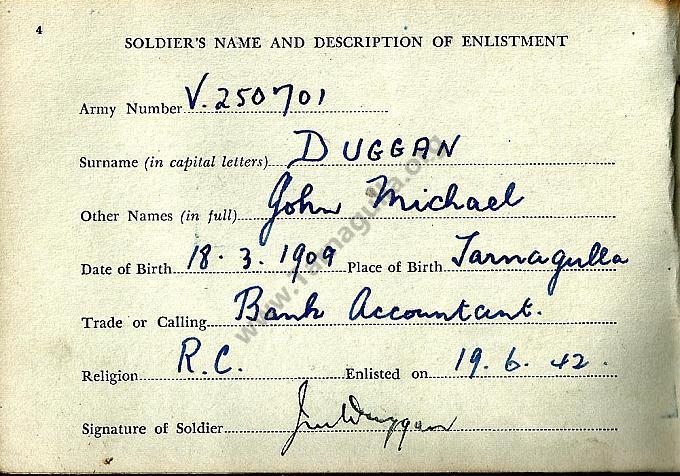 4
SOLDIER'S NAME AND DESCRIPTION OF ENLISTMENT
Army Number V. 250701
Surname (in capital letters) DUGGAN
Other Names (in full) John Michael
Date of Birth 18. 3. 1909 Place of Birth Tarnagulla
Trade or Calling Bank Accountant.
Religion R.C. Enlisted on 19. 6. 42.
Signature of Soldier JMDuggan
www.Tarnagulla.org